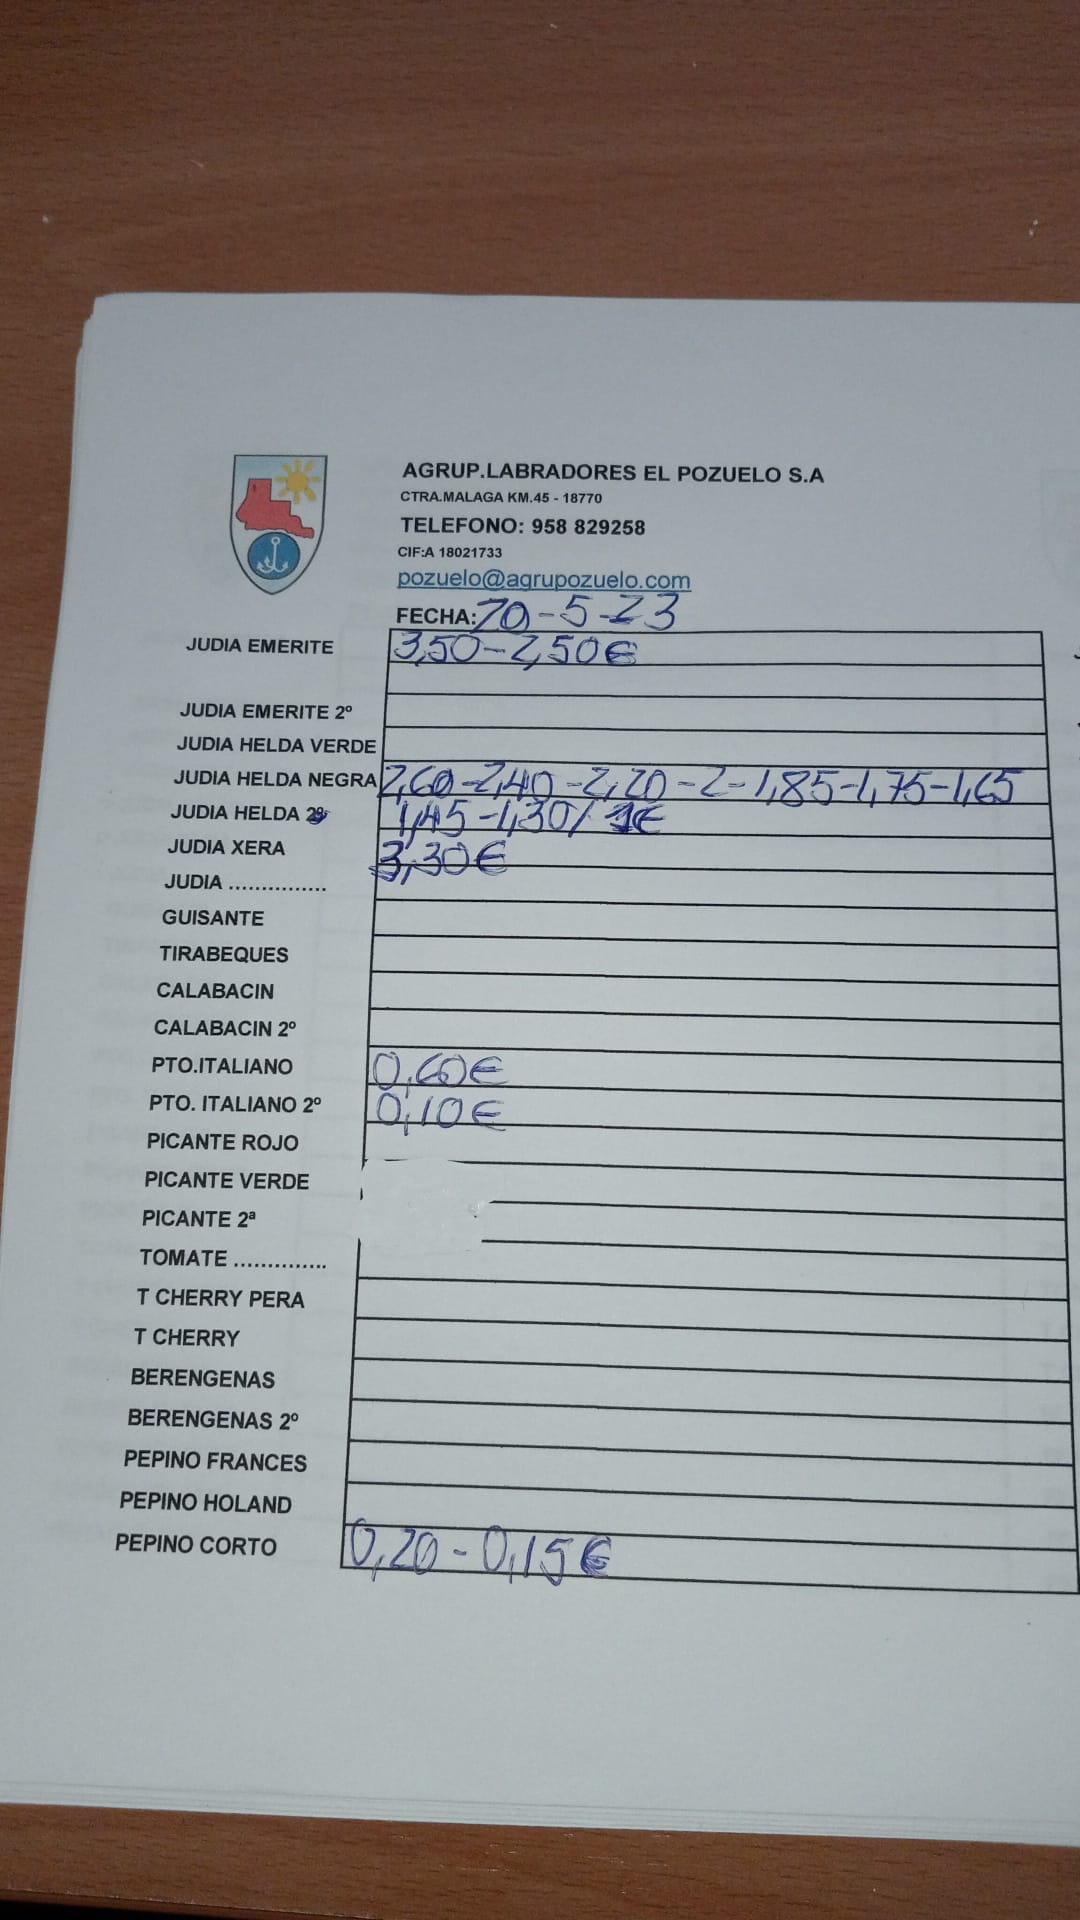 AGRUP.LABRADORES EL POZUELO S.A
CTRA.MALAGA KM.45 - 18770
TELEFONO: 958 829258
CIF:A 18021733
pozuelo@agrupozuelo.com
FECHA: 20-5-23
JUDIA EMERITE 3,50-2,50€
JUDIA EMERITE 2º
JUDIA HELDA VERDE
JUDIA HELDA NEGRA 2,60-2,40-2,20-2-1,85-1,75-1,65
JUDIA HELDA 2º 1,45-1,30/1€
JUDIA XERA 3,30€
JUDIA ...............
GUISANTE
TIRABEQUES
CALABACIN
CALABACIN 2º
PTO.ITALIANO 0,60€
PTO. ITALIANO 2º 0,10€
PICANTE ROJO
PICANTE VERDE
PICANTE 2ª
TOMATE ..............
T CHERRY PERA
T CHERRY
BERENGENAS
BERENGENAS 2º
PEPINO FRANCES
PEPINO HOLAND
PEPINO CORTO 0,20-0,15€